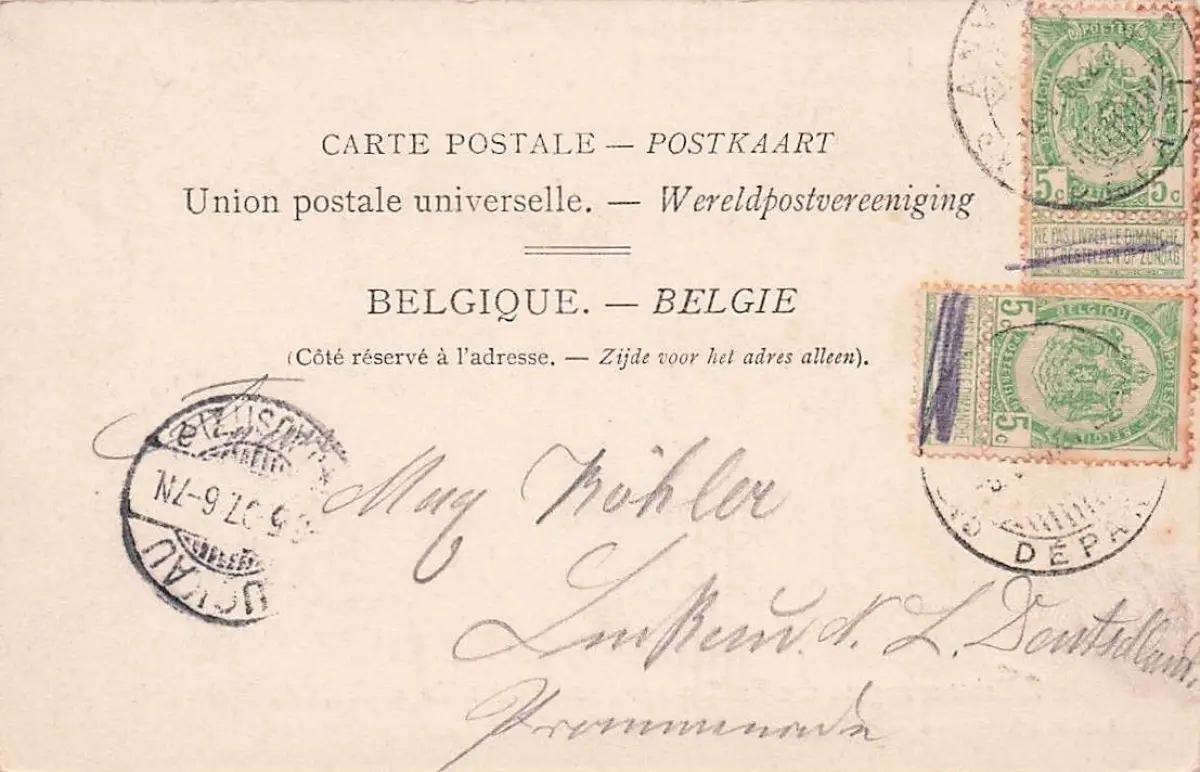 CARTE POSTALE — POSTKAART
Union postale universelle. — Wereldpostvereeniging
BELGIQUE. — BELGIE
(Côté réservé à l'adresse. — Zijde voor het adres alleen).
POSTES
5c 5c
NE PAS LIVRER LE DIMANCHE
NIET BESTELLEN OP ZONDAG
BELGIQUE
POSTES
5c 5c
DÉPA
5.07.6-7N.
Köhler
N. L. Deutschland
Prommenade